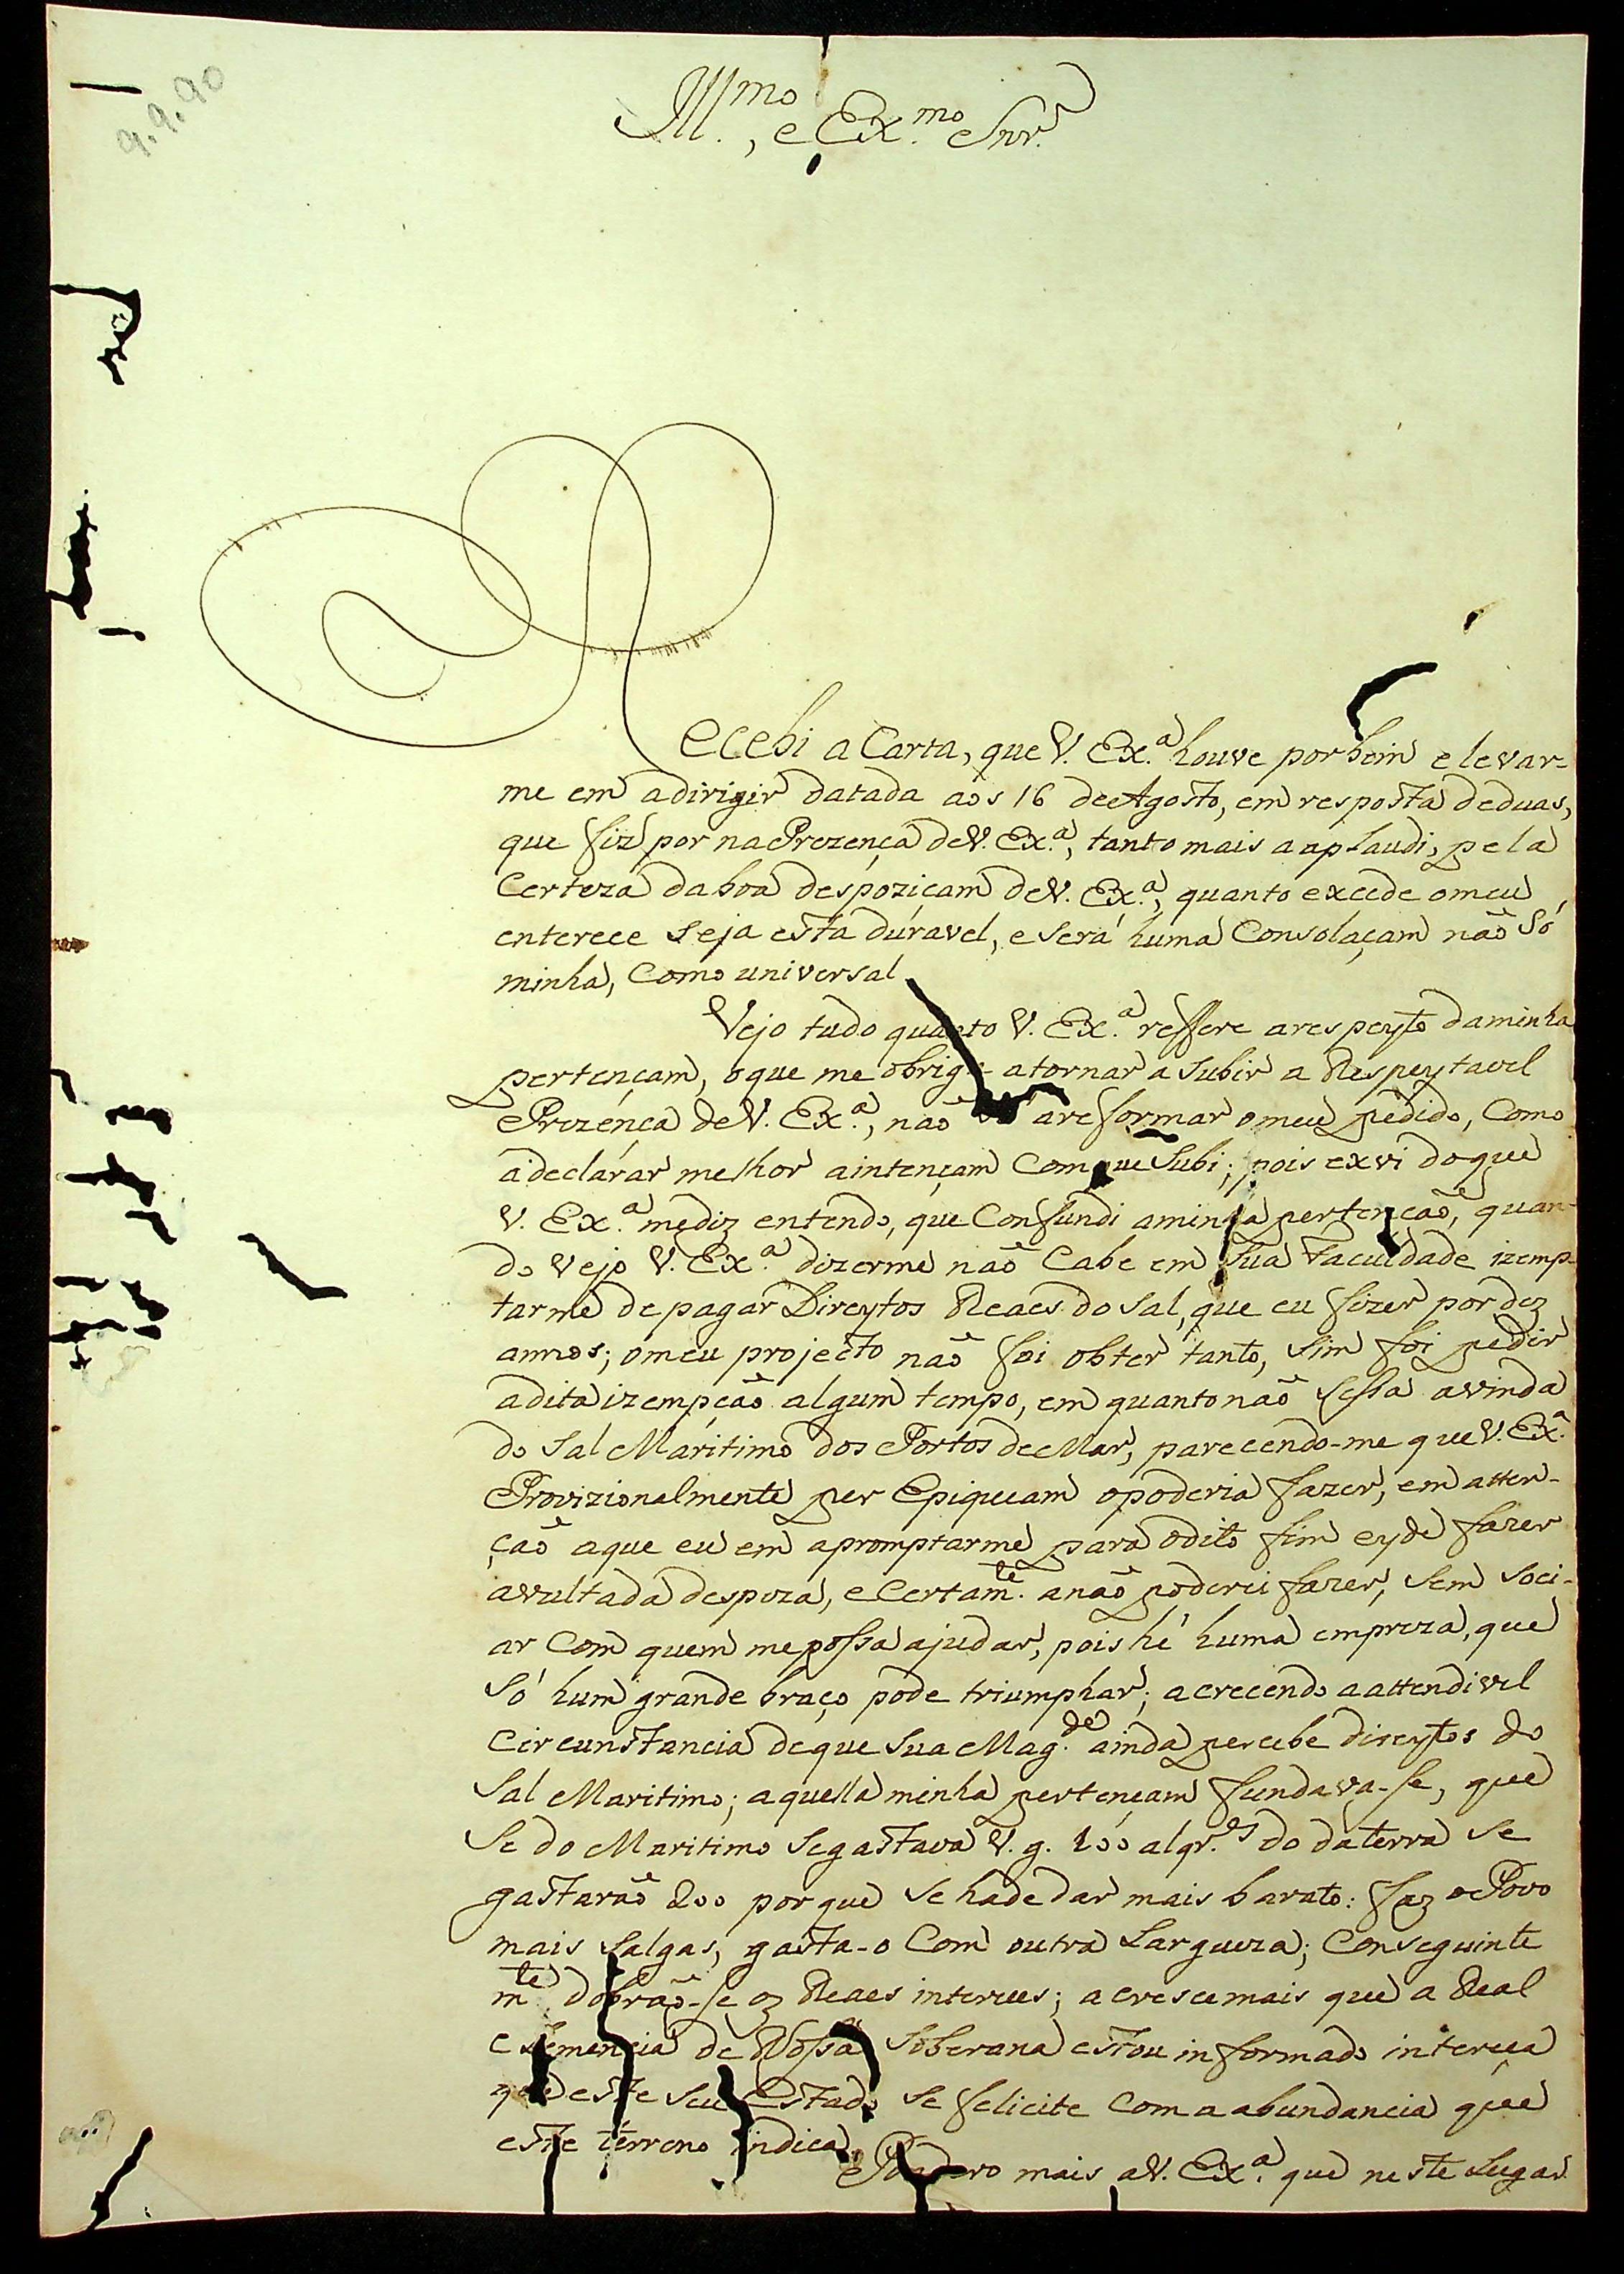 9.9.90
Ill.mo, e Ex.mo Snr.
Recebi a Carta, que V. Ex.a houve por bem elevar-
me em adirigir datada aos 16 de Agosto, em resposta de duas,
que fiz por na Prezença de V. Ex.a, tanto mais a aplaudi, pela
Certeza da boa despoziçam de V. Ex.a, quanto excede o meu
enterece seja esta duravel, e será huma Consolaçam não só
minha, Como universal
Vejo tudo quanto V. Ex.a reffere a respeyto da minha
pertençam, o que me obriga a tornar a subir a Respeytavel
Prezença de V. Ex.a, não a reformar o meu pedido, Como
a declarar melhor a intençam Com que Subi; pois ex vi do que
V. Ex.a me diz entendo, que Confundi a minha pertenção, quan-
do vejo V. Ex.a dizerme não Cabe em sua Faculdade izemp-
tarme de pagar Direytos Reaes do Sal, que eu fizer por dez
annos; o meu projecto não foi obter tanto, sim foi pedir
a dita izempção algum tempo, em quanto não sessa a vinda
do Sal Maritimo dos Portos de Mar, parecendo-me que V. Ex.a
Provizionalmente per Epiqueam o poderia fazer, em atten-
ção a que eu em apromptarme para o dito fim eyde fazer
avultada despeza, e Certam.te a não poderei fazer, sem soci-
ar Com quem me possa ajudar, pois hé huma empreza, que
Só hum grande braço pode triumphar; acrecendo a attendivel
Circunstancia de que Sua Mag.de ainda percebe direytos do
Sal Maritimo; aquella minha pertençam fundava-se, que
Se do Maritimo se gastava V. g. 100 alqr.es do da terra se
gastarão 200 por que se hade dar mais barato: faz o Povo
mais salgas, gasta-o Com outra Largueza; Conseguinte
m.te dobrão-se oz Reaes interces; acresce mais que a Real
Clemencia de Nossa Soberana estou informado intereça
que este seu Estado se felicite Com a abundancia que
este terreno indica.
Pondero mais a V. Ex.a que neste Lugar